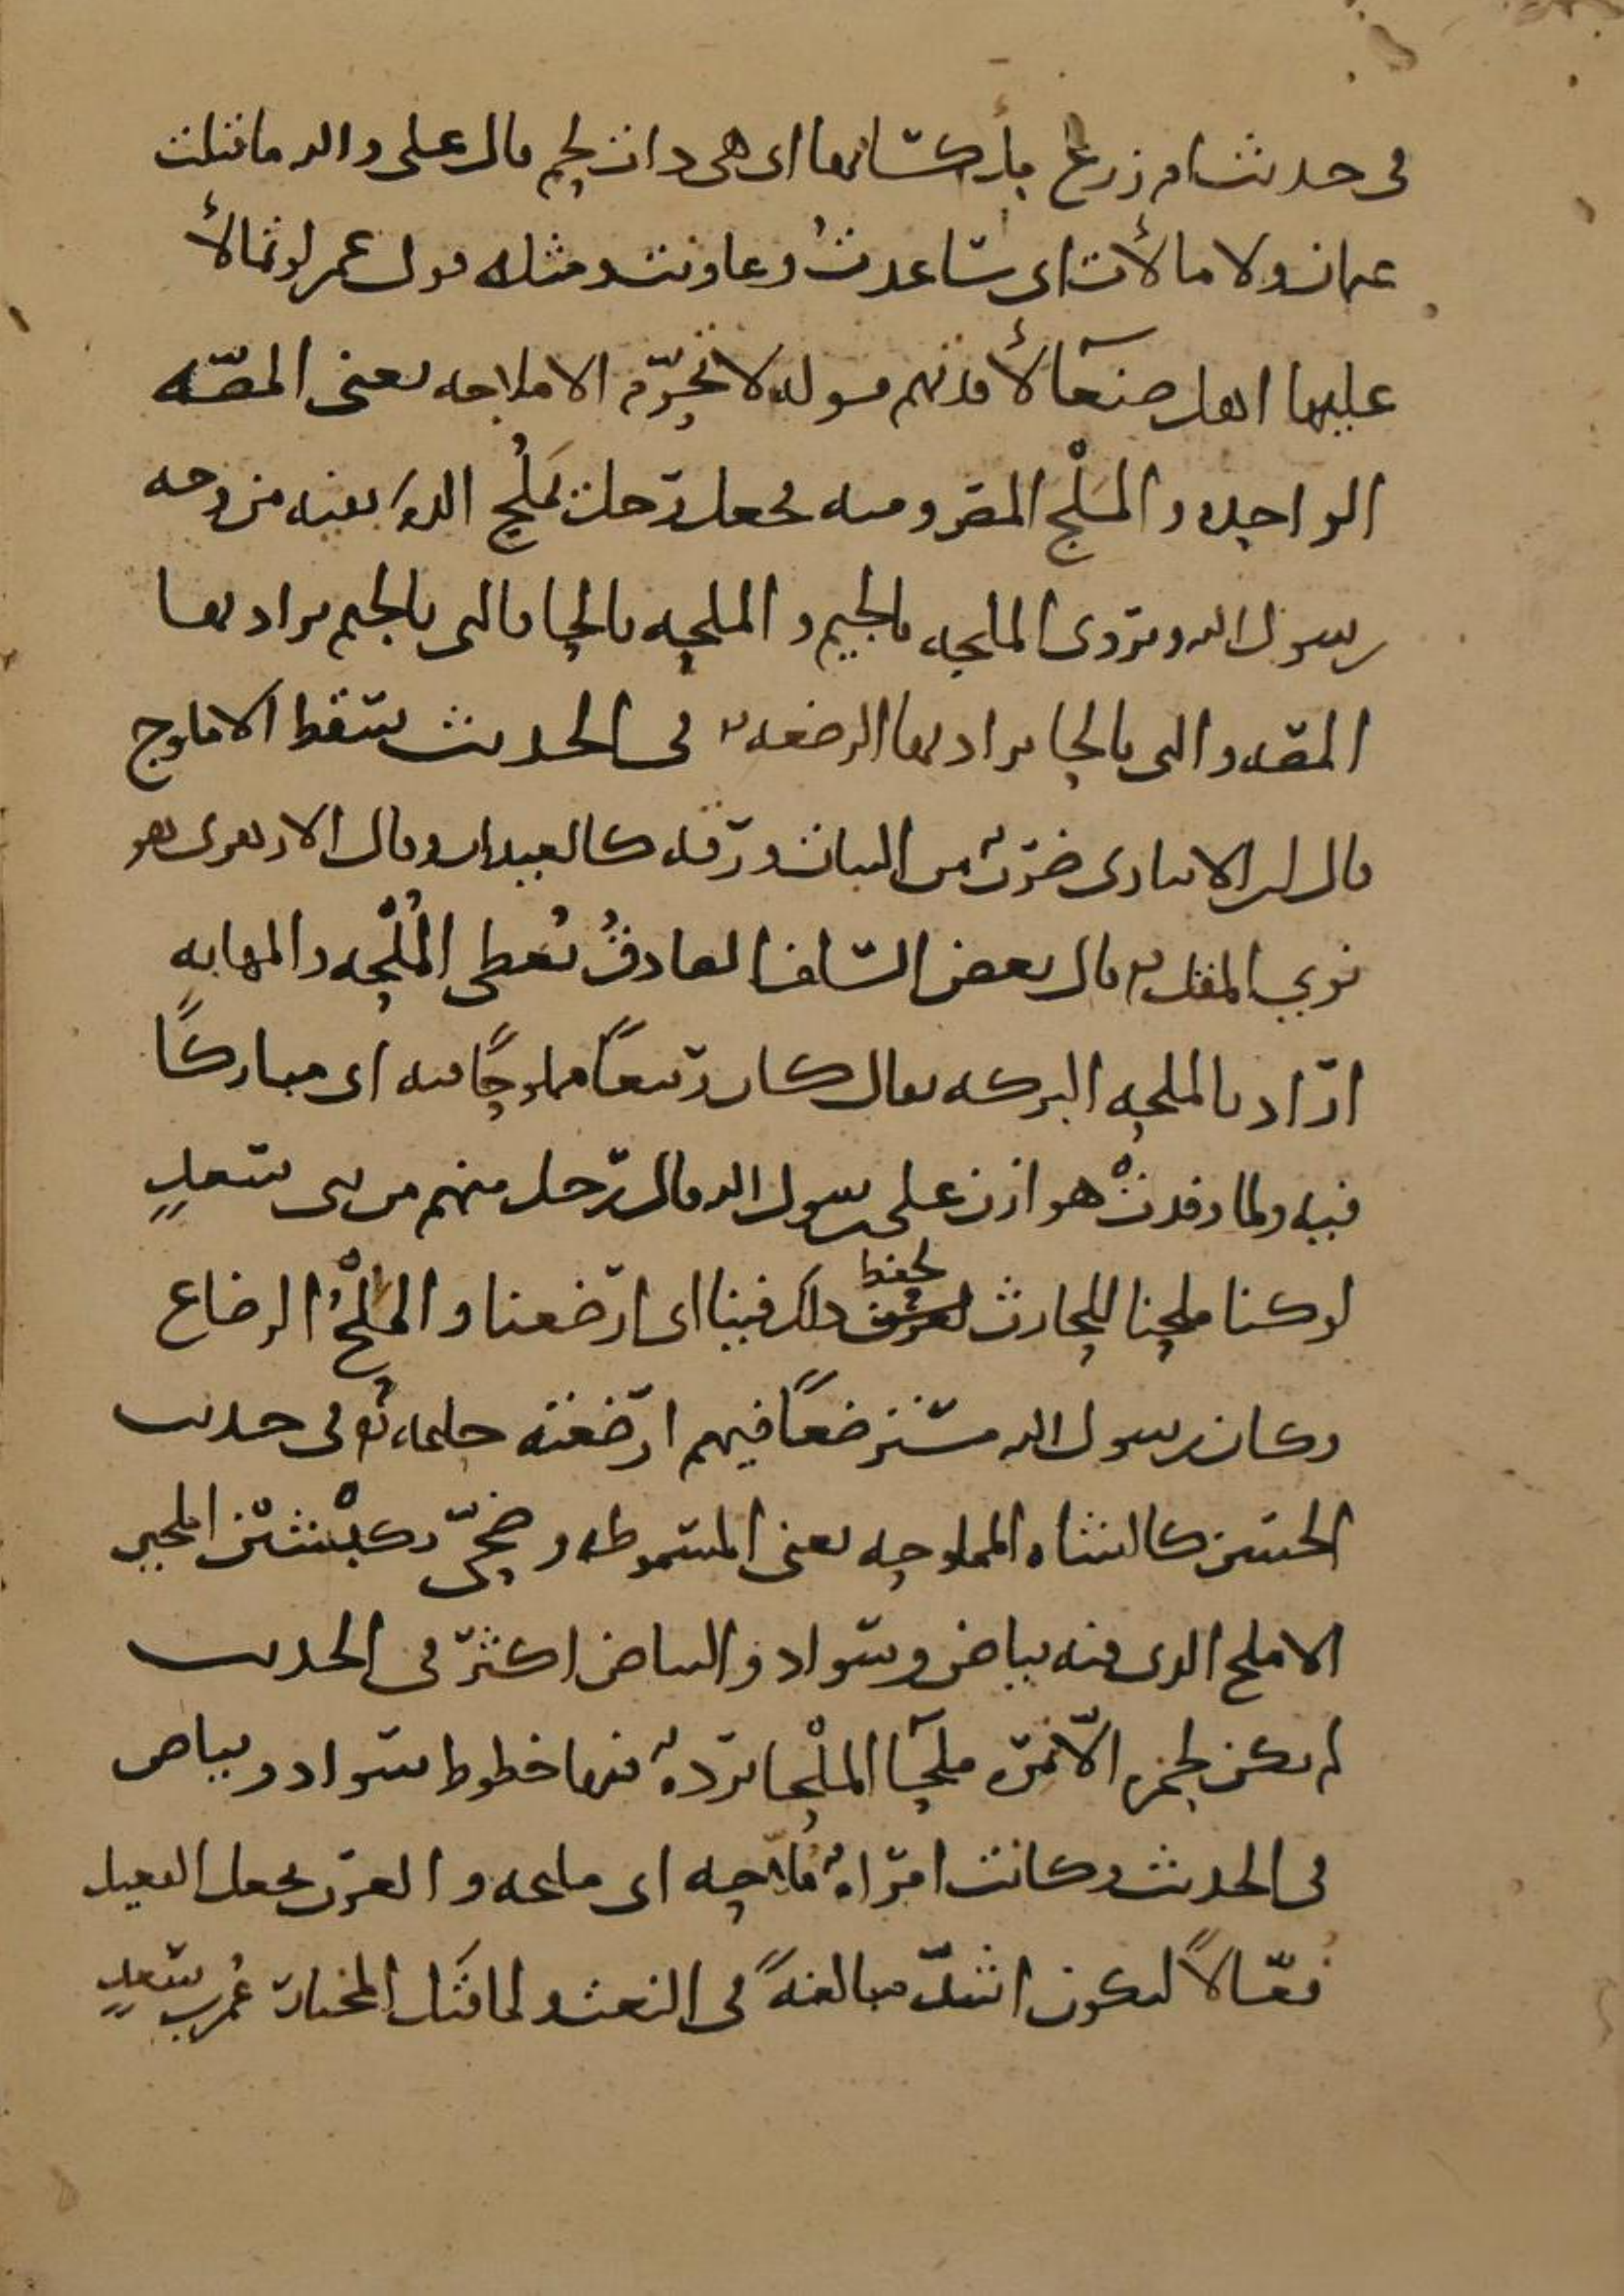 في حديث ام زرع ملء كسائها اى هى ذات لحم قال على والله ما قتلت
عثمان ولا مالأت اى ساعدت وعاونت ومثله قول عمر لو تمالأ
عليها اهل صنعآ لأقدتهم قوله لا تحرّم الاملاجه يعنى المصّه
الواحده والمَلْج المص ومنه فجعل رجل يَمْلُج الدم بفيه من وجه
رسول الله ويروى الملجه بالجيم والملحه بالحا فالتى بالجيم يراد بها
المصّه والتى بالحا يراد بها الرضعه في الحديث سقط الاملوج
قال ابن الانبارى ضربٌ من النبات ورقه كالعيدان وقال الازهرى هو
نوى المقل قال بعض السلف الصادق يُعطى المُلْحه والمهابه
اراد بالملحه البركه يقال كان ربيعًا مملوحًا فيه اى مباركًا
فيه ولما وفدتْ هوازن على رسول الله قال رجل منهم من بنى سعدٍ
لو كنا ملحنا للحارث لحفظ ذلك فينا اى ارضعنا والمِلْحُ الرضاع
وكان رسول الله مسترضعًا فيهم ارضعته حليمه في حديث
الحسن كالشاه المملوحه يعنى المسموطه وضحىّ بكبْشين املحين
الاملح الذى فيه بياض وسواد والبياض اكثر في الحديث
لم يكن لحمزه الّا نمره ملحآ الملْحا بردهٌ فيها خطوط سواد وبياض
في الحديث وكانت امراهٌ مُلّاحه اى مليحه والعرب تجعل الفعيل
فُعّالًا ليكون اشدّ مبالغهً في النعت ولما قَتَل المختار عُمر بن سعدٍ